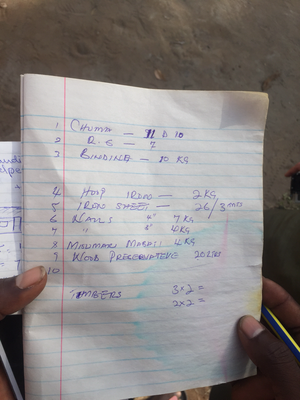 1 CHUMA — D 10
2 R.6 — 7
3 BINDING — 10 KG
4 HOOP IRON — 2 KG
5 IRON SHEET — 26/3
6 NAILS 4" 7 KG
7 " 4KG
8 MISUMARI MABATI 4KG
9 WOOD PRESERVATIVE
10
TIMBERS 3x2 =
2x2 =